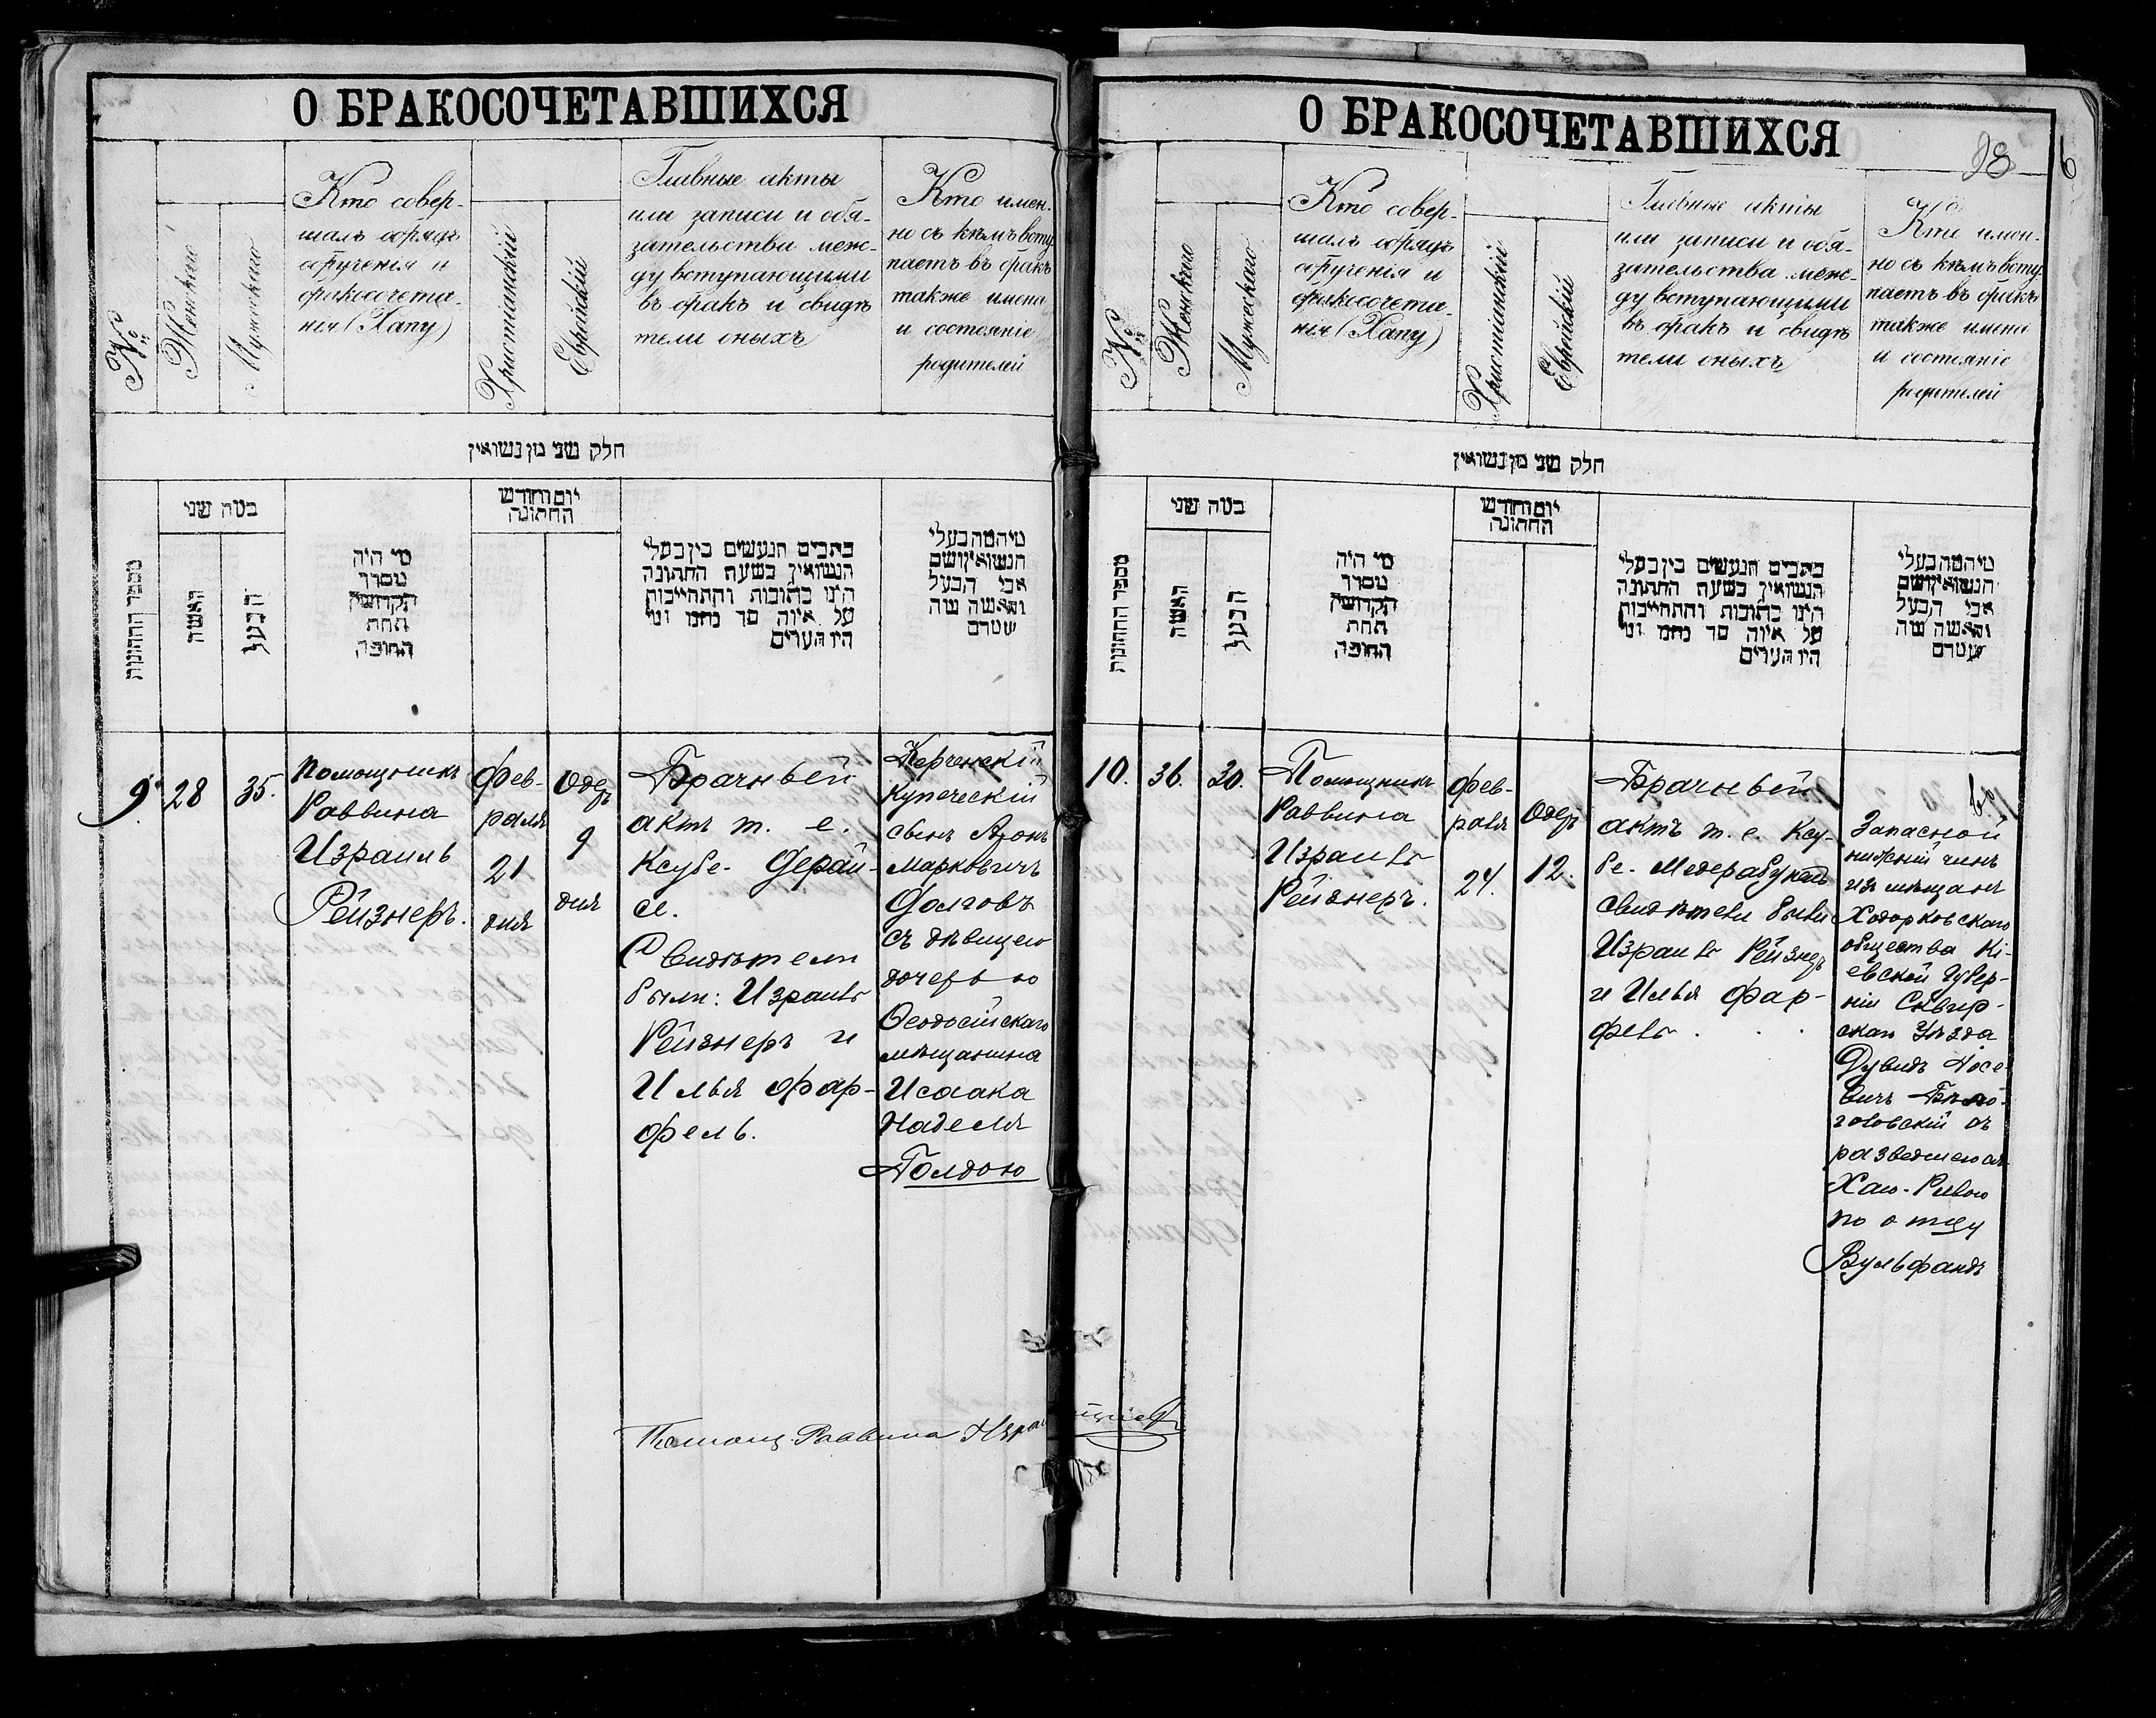 О БРАКОСОЧЕТАВШИХСЯ
№
Женскаго
Мужескаго
Кто совер-
шалъ обрядъ
обрученія и
бракосочета-
нія (Хапу)
Христіанскій
Еврейскій
Главные акты
или записи и обя-
зательства меж-
ду вступающими
въ бракъ и свидѣ
тели оныхъ
Кто имен-
но съ кѣмъ всту
паетъ въ бракъ
также имена
и состояніе
родителей
חלק שני מן נשואין
מספר החתונות
בטה שני
האשה
הבעל
מי היה
מסדר
הקדושין
תחת
החופה
יום וחודש
החתונה
כתבים הנעשים בין בעלי
הנשואין בשעת החתונה
הינו כתובות והתחייבות
על איזה סך נחנו ומי
היו העדים
מיהמה בעלי
הנשואין ושם
אבי הבעל
והאשה
9.
28
35.
Помощникъ
Раввина
Израиль
Рейзнеръ.
Фев-
раля
21
дня
Одеръ
9
дня
Брачный
актъ т. е.
Ксубе. Дерай-
се.
Свидѣтели
были: Израиль
Рейзнеръ и
Илья Фар-
фель.
Керченскій
купеческій
сынъ Аронъ
Марковичъ
Долговъ
съ дѣвицею
дочерью
Ѳеодосійскаго
мѣщанина
Исаака
Наделя
Голдою
Помощ. Раввина
О БРАКОСОЧЕТАВШИХСЯ
98
6
№
Женскаго
Мужескаго
Кто совер-
шалъ обрядъ
обрученія и
бракосочета-
нія (Хапу)
Христіанскій
Еврейскій
Главные акты
или записи и обя-
зательства меж-
ду вступающими
въ бракъ и свидѣ
тели оныхъ
Кто имен-
но съ кѣмъ всту
паетъ въ бракъ
также имена
и состояніе
родителей
חלק שני מן נשואין
מספר החתונות
בטה שני
האשה
הבעל
מי היה
מסדר
הקדושין
תחת
החופה
יום וחודש
החתונה
כתבים הנעשים בין בעלי
הנשואין בשעת החתונה
הינו כתובות והתחייבות
על איזה סך נחנו ומי
היו העדים
מיהמה בעלי
הנשואין ושם
אבי הבעל
והאשה
10.
36.
30.
Помощникъ
Раввина
Израиль
Рейзнеръ.
Фев-
раля
24.
Одеръ
12.
Брачный
актъ т. е. Ксу-
бе.
свидѣтели были
Израиль Рейзнеръ
и Илья Фар-
фель.
Запасной
нижній чинъ
изъ мѣщанъ
Ходорковскаго
общества Кі-
евской Губер-
ніи Сквир-
скаго Уѣзда
Дувидъ Іосе-
вичъ Бѣло-
головскій съ
разведшеюся
Хаю-Ривою
по отцу
Вульфандъ